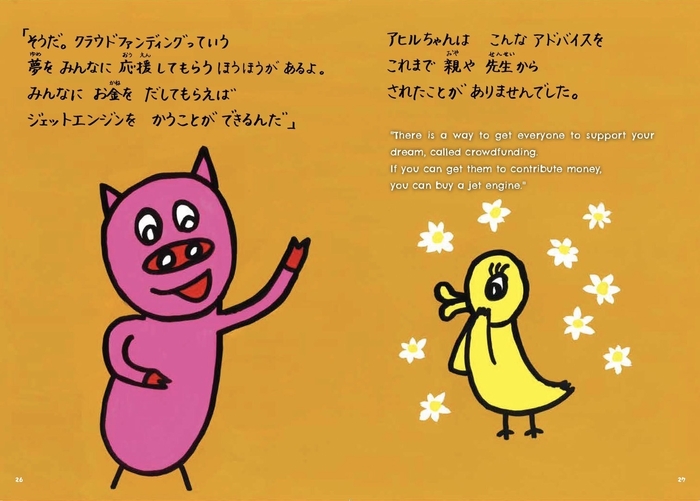 「そうだ。クラウドファンディングっていう
夢を みんなに 応援 してもらう ほうほうが あるよ。
みんなに お金を だしてもらえば
ジェットエンジンを かうことが できるんだ」
アヒルちゃんは こんな アドバイスを
これまで 親や 先生から
されたことが ありませんでした。
"There is a way to get everyone to support your
dream, called crowdfunding.
If you can get them to contribute money,
you can buy a jet engine."
26
27